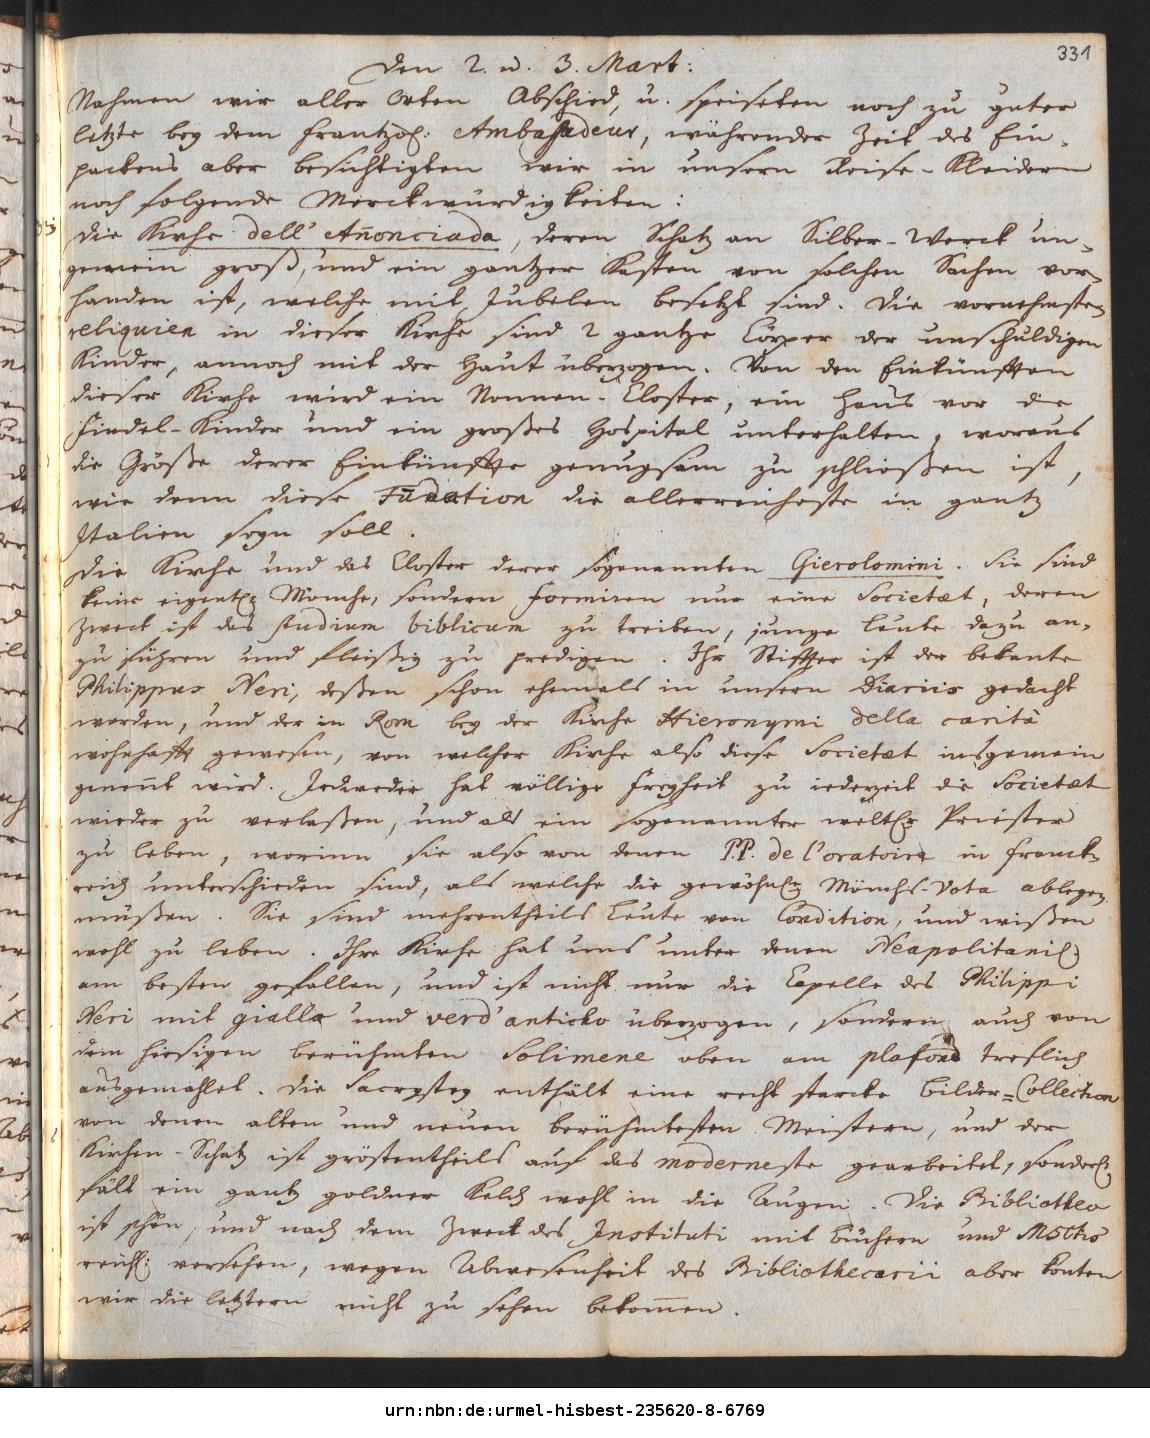 331
Den 2. u. 3. Mart:
Nahmen wir aller Orten Abschied, u. speiseten noch zu guter
letzte bey dem Frantzös: Ambassadeur, während der Zeit des Ein-
packens aber besichtigten wir in unsern Reise-Kleidern
noch folgende Merckwürdigkeiten:
Die Kirche dell' Añonciada, deren Schatz an Silber-Werck un-
gemein groß, und ein gantzer Kasten von solchen Sachen vor-
handen ist, welche mit Jubelen besetzt sind. Die vornehmsten
reliquien in dieser Kirche sind 2 gantze Cörper der unschuldigen
Kinder, annoch mit der Haut überzogen. Von den Einkünfften
dieser Kirche wird ein Nonnen-Closter, ein Haus vor die
Findel-Kinder und ein großes Hospital unterhalten, woraus
die Größe derer Einkünffte genugsam zu schließen ist,
wie denn diese Fūdation die allerreicheste in gantz
Italien seyn soll.
Die Kirche und das Closter derer sogenannten Gierolomini. Sie sind
keine eigentl: Mönche, sondern formiren nur eine Societæt, deren
Zweck ist das studium biblicum zu treiben, junge Leute dazu an-
zuführen und fleißig zu predigen. Ihr Stiffter ist der bekante
Philippus Neri, deßen schon ehemals in unsern Diariis gedacht
worden, und der in Rom bey der Kirche Hieronymi della carità
wohnhafft gewesen, von welcher Kirche also diese Societæt insgemein
geneñt wird. Jedweder hat völlige Freyheit zu iederzeit die Societæt
wieder zu verlaßen, und als ein sogenannter weltl: Priester
zu leben, worinn sie also von denen P.P. de l'oratoire in Franck-
reich unterschieden sind, als welche die gewöhnl: Mönchs-Vota ablegen
müßen. Sie sind mehrentheils Leute von Condition, und wißen
wohl zu leben. Ihre Kirche hat uns unter denen Neapolitanis:
am besten gefallen, und ist nicht nur die Capelle des Philippi
Neri mit giallo und verd'anticho überzogen, sondern auch von
dem hiesigen berühmten Solimene oben am plafond treflich
ausgemahlet. Die Sacrystey enthält eine recht starcke Bilder-Collection
von denen alten und neuen berühmtesten Meistern, und der
Kirchen-Schatz ist gröstentheils auf das moderneste gearbeitet, sonderl:
fält ein gantz goldner Kelch wohl in die Augen. Die Bibliothec
ist schön, und nach dem Zweck des Instituti mit Büchern und MSCtis
reichl: versehen, wegen Abwesenheit des Bibliothecarii aber konten
wir die letztern nicht zu sehen bekom̄en.
urn:nbn:de:urmel-hisbest-235620-8-6769